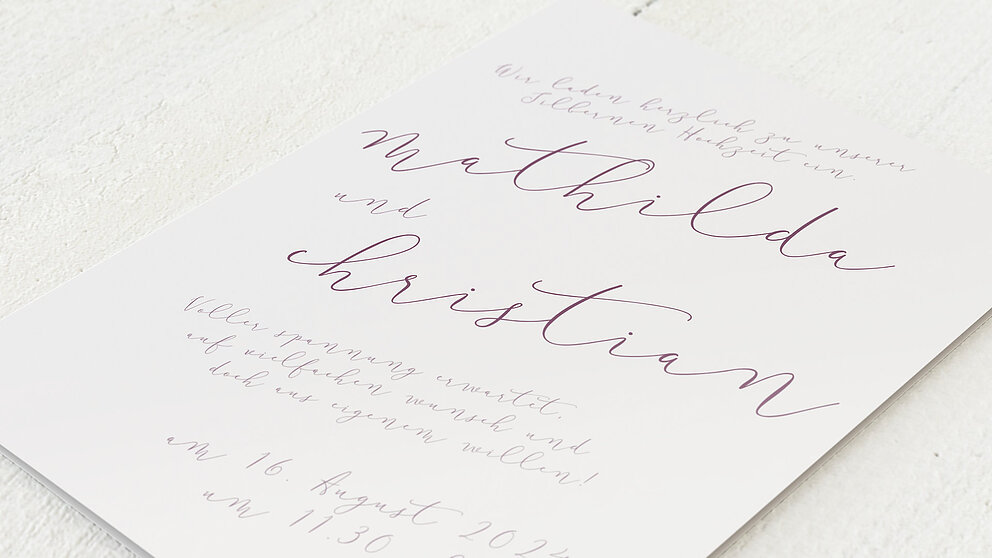 Wir laden herzlich zu unserer
Silbernen Hochzeit ein.
Mathilda
und
Christian
Voller spannung erwartet,
auf vielfachen wunsch und
doch aus eigenem willen!
am 16. August 2024
um 11.30